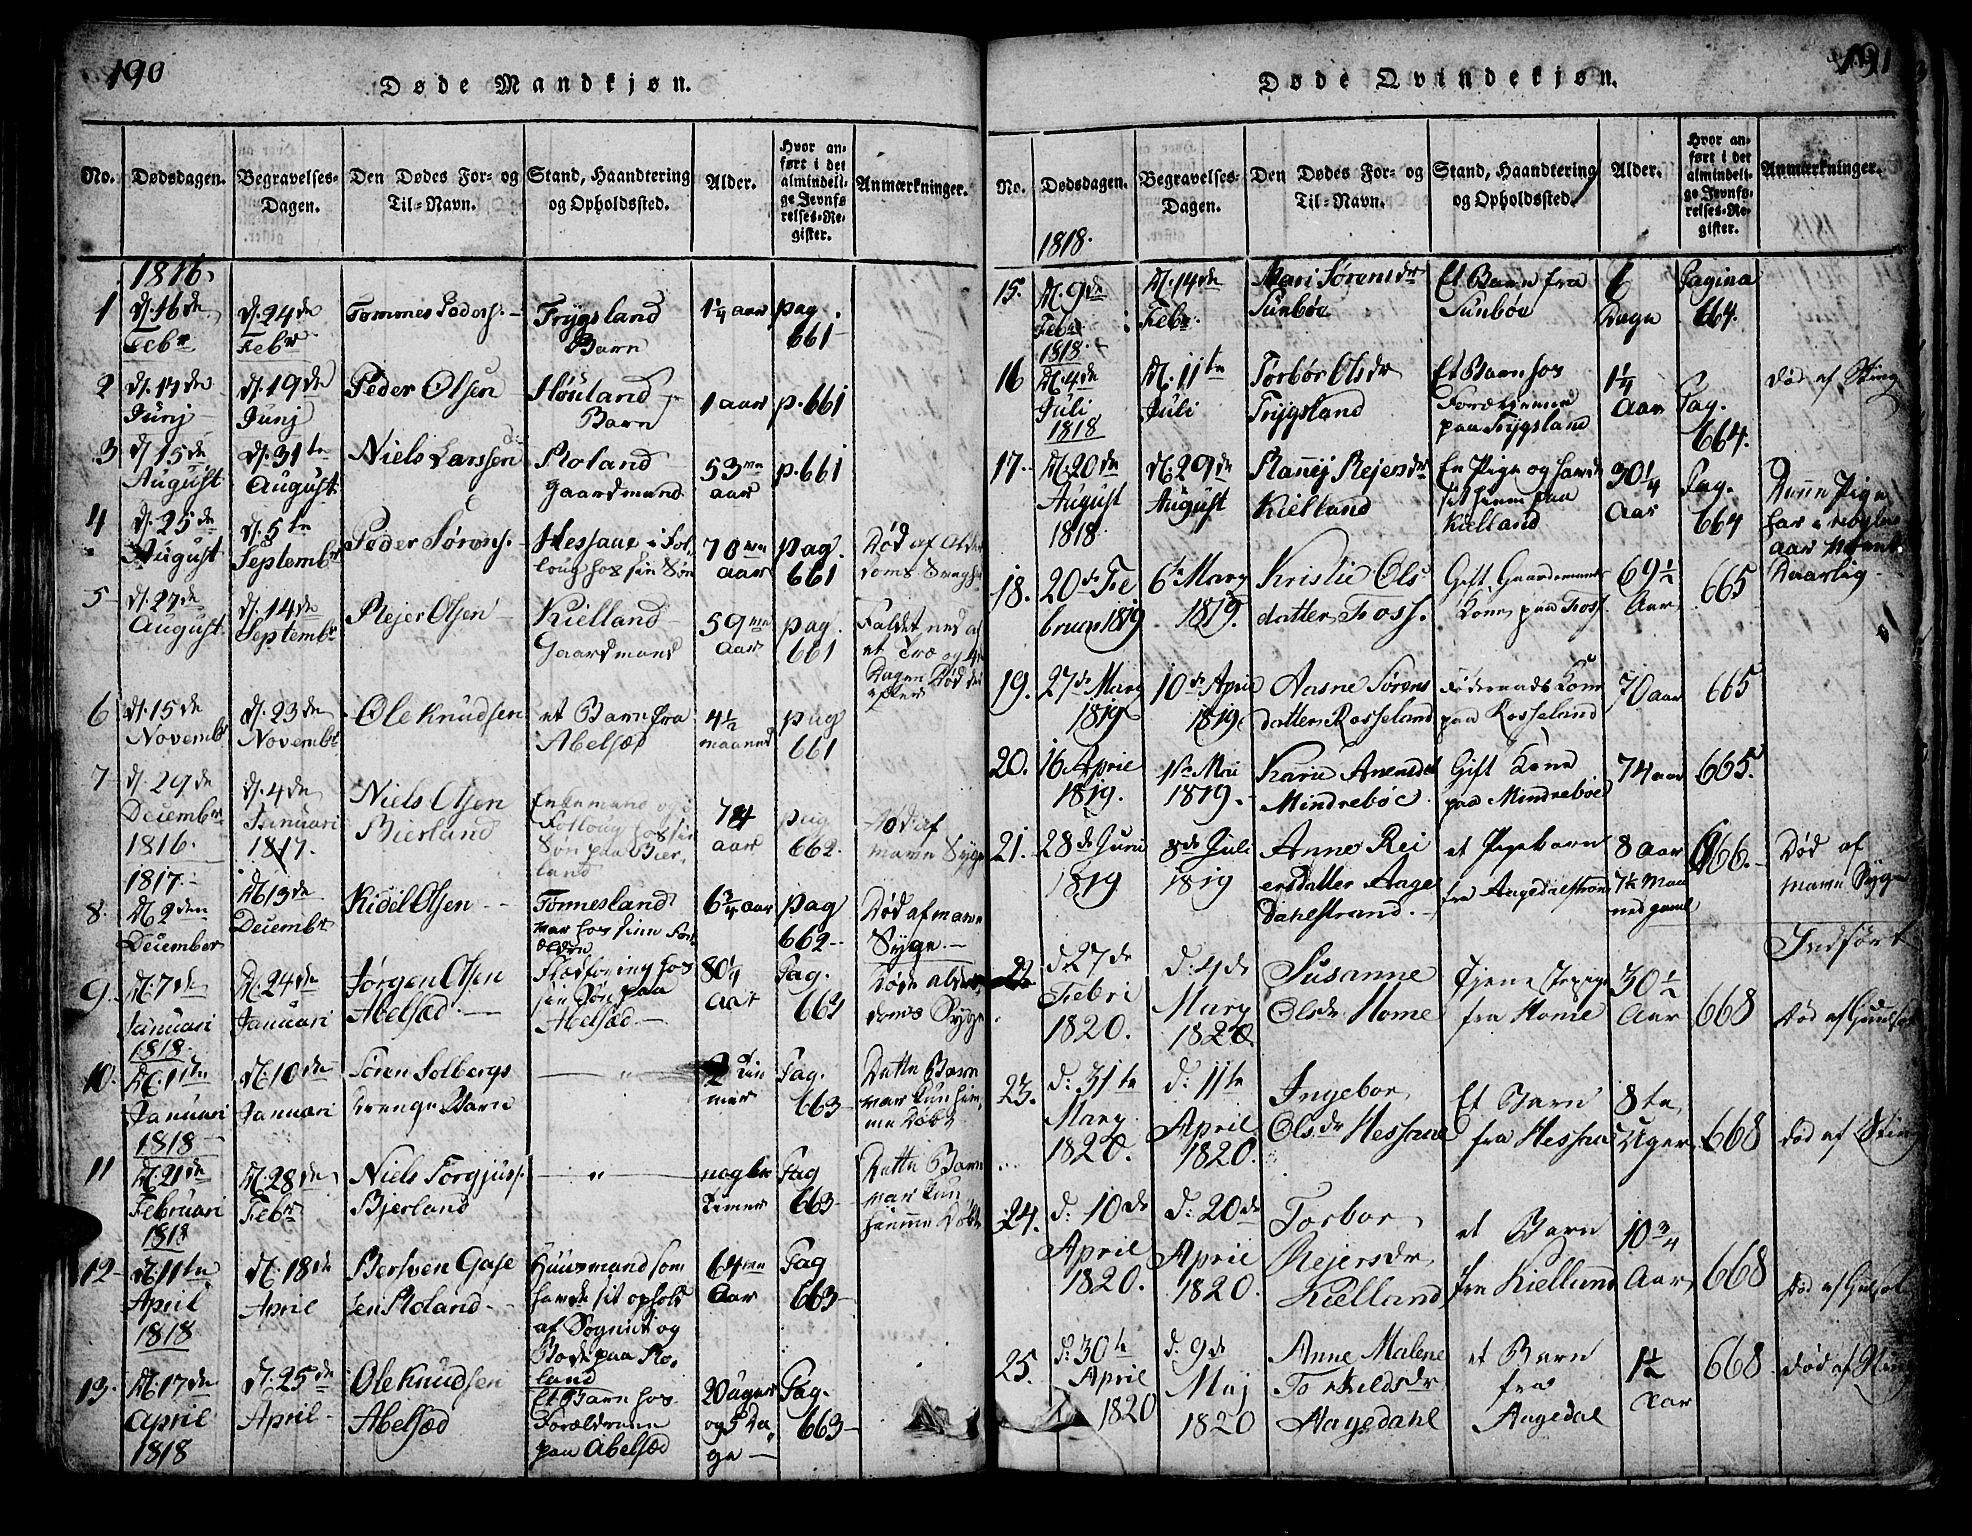 190
Døde Mandkjøn.
No.
Dødsdagen.
Begravelses-
Dagen.
Den Dødes For- og
Til-Navn.
Stand, Haandtering
og Opholdssted.
Alder.
Hvor an-
ført i det
almindeli-
ge Jevnfø-
relses-Re-
gister.
Anmærkninger.
1816.
1
d. 16de
Febr
d. 24de
Febr
Tommes Peders.
Frygsland
Barn
1¼ aar
pag.
661
2
Junj
d. 19de
Junj
Peder Olsen
Høuland
Barn
1 aar
p. 661
3
d. 15de
August
d. 31te
August
Niels Larssen
Roland
Gaardmand
53me
aar
p. 661
4
d. 25de
August
d. 5te
Septembr
Peder Sørens.
Hessaae i Fol-
loug hos sin Søn
70me
aar
pag.
661
Død af Alder
doms Svaghed
5
d. 27de
August
d. 14de
Septembr
Rejer Olsen
Kielland
Gaardmand
59me
aar
pag.
661
Faldet ned af
et Træ og
Dagen Død der
efter
6
d. 15de
Novembr
d. 23de
Novembr
Ole Knudsen
et Barn fra
Abelsæd
4½
maaned
pag
661
7
d. 29de
Decembr
1816.
d. 4de
Januari
1817.
Niels Olsen
Bierland
Enkemand og i
Folloug hos sin
Søn paa Bier-
land
74
aar
pag
662.
Død af
mave Syge
1817.
8.
D. 2den
December
D. 13de
Decembr
Kidel Olsen
Tonnesland
var hos sine For
ældre
6¾ aar
pag
662
Død af mave
Syge.
9.
D. 7de
Januari
1818.
D. 24de
Januari
Jørgen Olsen
Abelsæd.
Flædføring hos
sin Søn paa
Abelsæd.
80¼
aar
Pag.
663
Døde alder-
doms Syge
10.
D. 1te
Januari
1818
D. 10de
Januari
Søren Solbergs
Drenge Barn
"
2 Tim
mer
Pag.
663
Dette Barn
var kun hiem-
me Døbt
11
D. 21de
Februari
1818
D. 28de
Febr
Niels Torgjuss.
Bjerland
"
nogle
Timer
Pag
663
Dette Barn
var kun
hiemme Døbt
12
D. 11te
April
1818
D. 18de
April
Bersven Gase
sen Roland
Huusmand som
havde sit ophold
af Sognet og
Boede paa Ro-
land
64me
Aar
Pag
663
13.
D. 17de
April
1818
D. 25de
April
Ole Knudsen
Abelsæd
Et Barn hos
Forældrene
paa Abelsæd
2 Uger
og 5 Da
ge
Pag.
663
191
Døde Qvindekjøn.
No.
Dødsdagen.
Begravelses-
Dagen.
Den Dødes For- og
Til-Navn.
Stand, Haandtering
og Opholdssted.
Alder.
Hvor an-
ført i det
almindeli-
ge Jevnfø-
relses-Re-
gister.
Anmærkninger.
1818.
15.
D. 9de
Febr
1818.
D. 14de
Febr
Mari Sørensdr
Sunbøe
Et Barn fra
Sunbøe
6
Dage
Pagina
664.
16
D. 4de
Juli
1818
D. 11te
Juli
Torbor Olsdr
Frygsland
Et Barn hos
Forældrene
paa Frygsland
1¼
Aar
Pag.
664.
død af Sting
17.
D. 20de
August
1818.
D. 29de
August
Rannej Rejersdr
Kielland
En Pige og havde
sit hiem paa
Kielland
30¼
Aar
Pag.
664
Denne Pige
har i nogle
aar været
Daarlig
18.
20de Fe
bruar 1819
6te Marz
1819.
Kristie Ols
datter Foss.
Gift Gaardmands
Kone paa Foss.
69½
Aar
665
19.
27de Marz
1819
10de April
1819.
Aasne Sørens
datter Rosseland
Føderaads Kone
paa Rosseland
70 aar
665
20.
16 April
1819.
1te Mai
1819.
Karie Anensdat
Mindrebøe
Gift Kone
paa Mindrebøe
74 aar
665.
21.
28de Juni
1819
8de Juli
1819
Anne Rei
ersdatter Aage
Dahlstrand.
et Pigebarn
fra Aagedalstrand
8 Aar
7½ Maa
ned gaml
666.
Død af
mave Syge
Indført
22
d. 27de
Febri
1820.
d. 4de
Marz
1820
Susanne
Olsdr Home
Tjeneste pige
fra Home
30½
Aar
668
23.
d. 31te
Marz
1820.
d. 11te
April
1820.
Ingebor
Olsdr Hessaae
Et Barn
fra Hessaae
8te
Uger
668
død af Sting
24.
d. 10de
April
1820.
d. 20de
April
1820.
Torbor
Rejersdr
Kielland
et Barn
fra Kielland
10¾
Aar
668
25.
d. 30te
April
1820
d. 9de
Maj
1820
Anne Malene
Torkildsdr
Aagedahl
et Barn
fra
Aagedal
1½
Aar
668
død af Sting